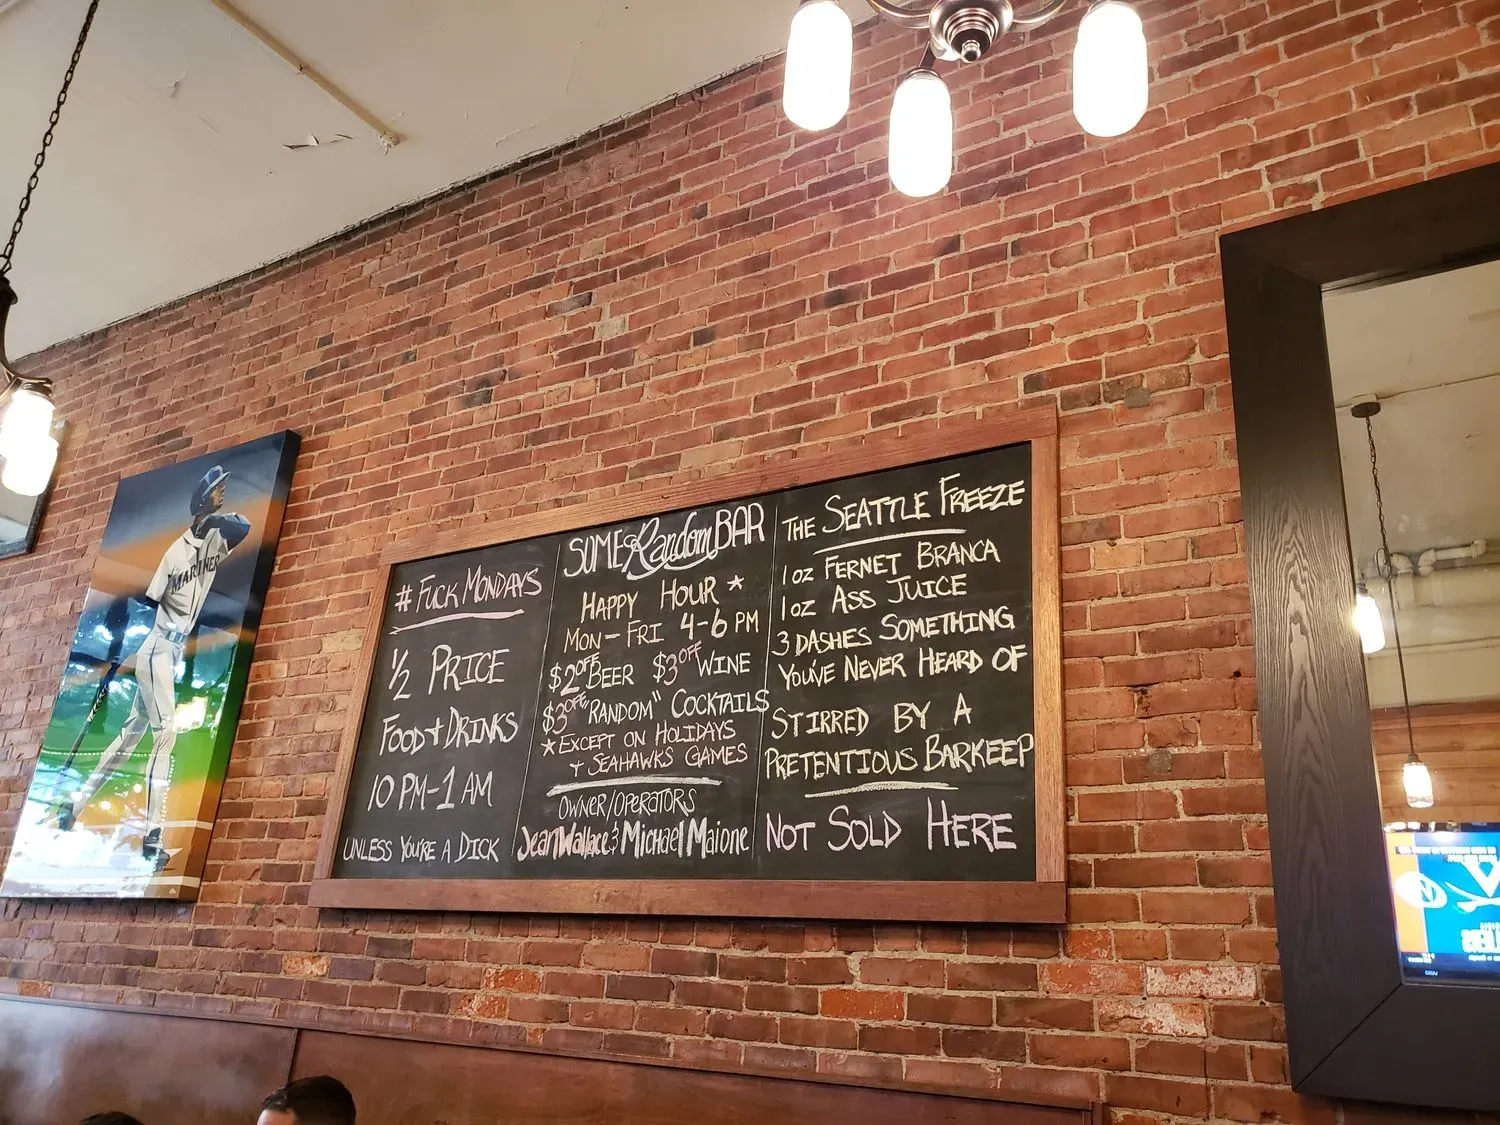 # FUCK MONDAYS
1/2 PRICE
FOOD + DRINKS
10 PM-1 AM
UNLESS YOU'RE A DICK
SOME Random BAR
HAPPY HOUR *
MON-FRI 4-6 PM
$2 OFF BEER $3 OFF WINE
$3 OFF "RANDOM" COCKTAILS
* EXCEPT ON HOLIDAYS
+ SEAHAWKS GAMES
OWNER/OPERATORS
Jean Wallace & Michael Maione
THE SEATTLE FREEZE
1 OZ FERNET BRANCA
1 OZ ASS JUICE
3 DASHES SOMETHING
YOU'VE NEVER HEARD OF
STIRRED BY A
PRETENTIOUS BARKEEP
NOT SOLD HERE
MARINERS